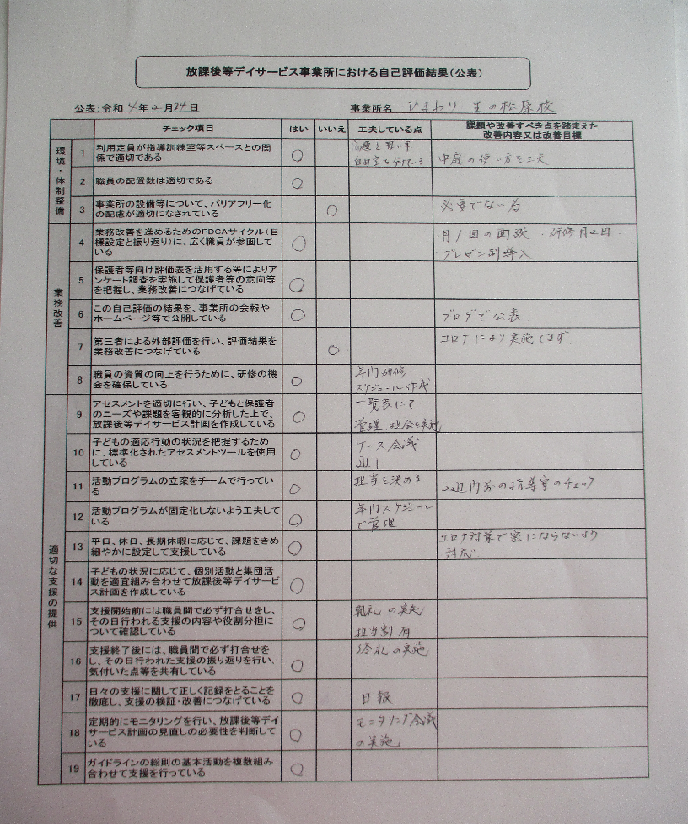 放課後等デイサービス事業所における自己評価結果(公表)
公表:令和4年2月24日
事業所名 ひまわり 生の松原校
チェック項目
はい
いいえ
工夫している点
課題や改善すべき点を踏まえた
改善内容又は改善目標
環境・体制整備
1
利用定員が指導訓練室等スペースとの関
係で適切である
○
2
職員の配置数は適切である
○
3
事業所の設備等について、バリアフリー化
の配慮が適切になされている
○
必要でない為
業務改善
4
業務改善を進めるためのPDCAサイクル(目
標設定と振り返り)に、広く職員が参画して
いる
○
月1回の面談・研修月2回・
プレゼン制導入
5
保護者等向け評価表を活用する等によりア
ンケート調査を実施して保護者等の意向等
を把握し、業務改善につなげている
○
6
この自己評価の結果を、事業所の会報や
ホームページ等で公開している
○
ブログで公表
7
第三者による外部評価を行い、評価結果を
業務改善につなげている
○
コロナにより実施せず
8
職員の資質の向上を行うために、研修の機
会を確保している
○
年間研修
スケジュール作成
適切な支援の提供
9
アセスメントを適切に行い、子どもと保護者
のニーズや課題を客観的に分析した上で、
放課後等デイサービス計画を作成している
○
一覧表にて
管理
10
子どもの適応行動の状況を把握するため
に、標準化されたアセスメントツールを使用
している
○
ケース会議
週1
11
活動プログラムの立案をチームで行ってい
る
○
担当を決める
12
活動プログラムが固定化しないよう工夫して
いる
○
年間スケジュール
で管理
13
平日、休日、長期休暇に応じて、課題をきめ
細やかに設定して支援している
○
コロナ対策で密にならないよう
対応
14
子どもの状況に応じて、個別活動と集団活
動を適宜組み合わせて放課後等デイサービ
ス計画を作成している
○
15
支援開始前には職員間で必ず打合せをし、
その日行われる支援の内容や役割分担に
ついて確認している
○
朝礼の実施
担当割り
16
支援終了後には、職員間で必ず打合せを
し、その日行われた支援の振り返りを行い、
気付いた点等を共有している
○
終礼の実施
17
日々の支援に関して正しく記録をとることを
徹底し、支援の検証・改善につなげている
○
日報
18
定期的にモニタリングを行い、放課後等デイ
サービス計画の見直しの必要性を判断して
いる
○
モニタリング会議
の実施
19
ガイドラインの総則の基本活動を複数組み
合わせて支援を行っている
○